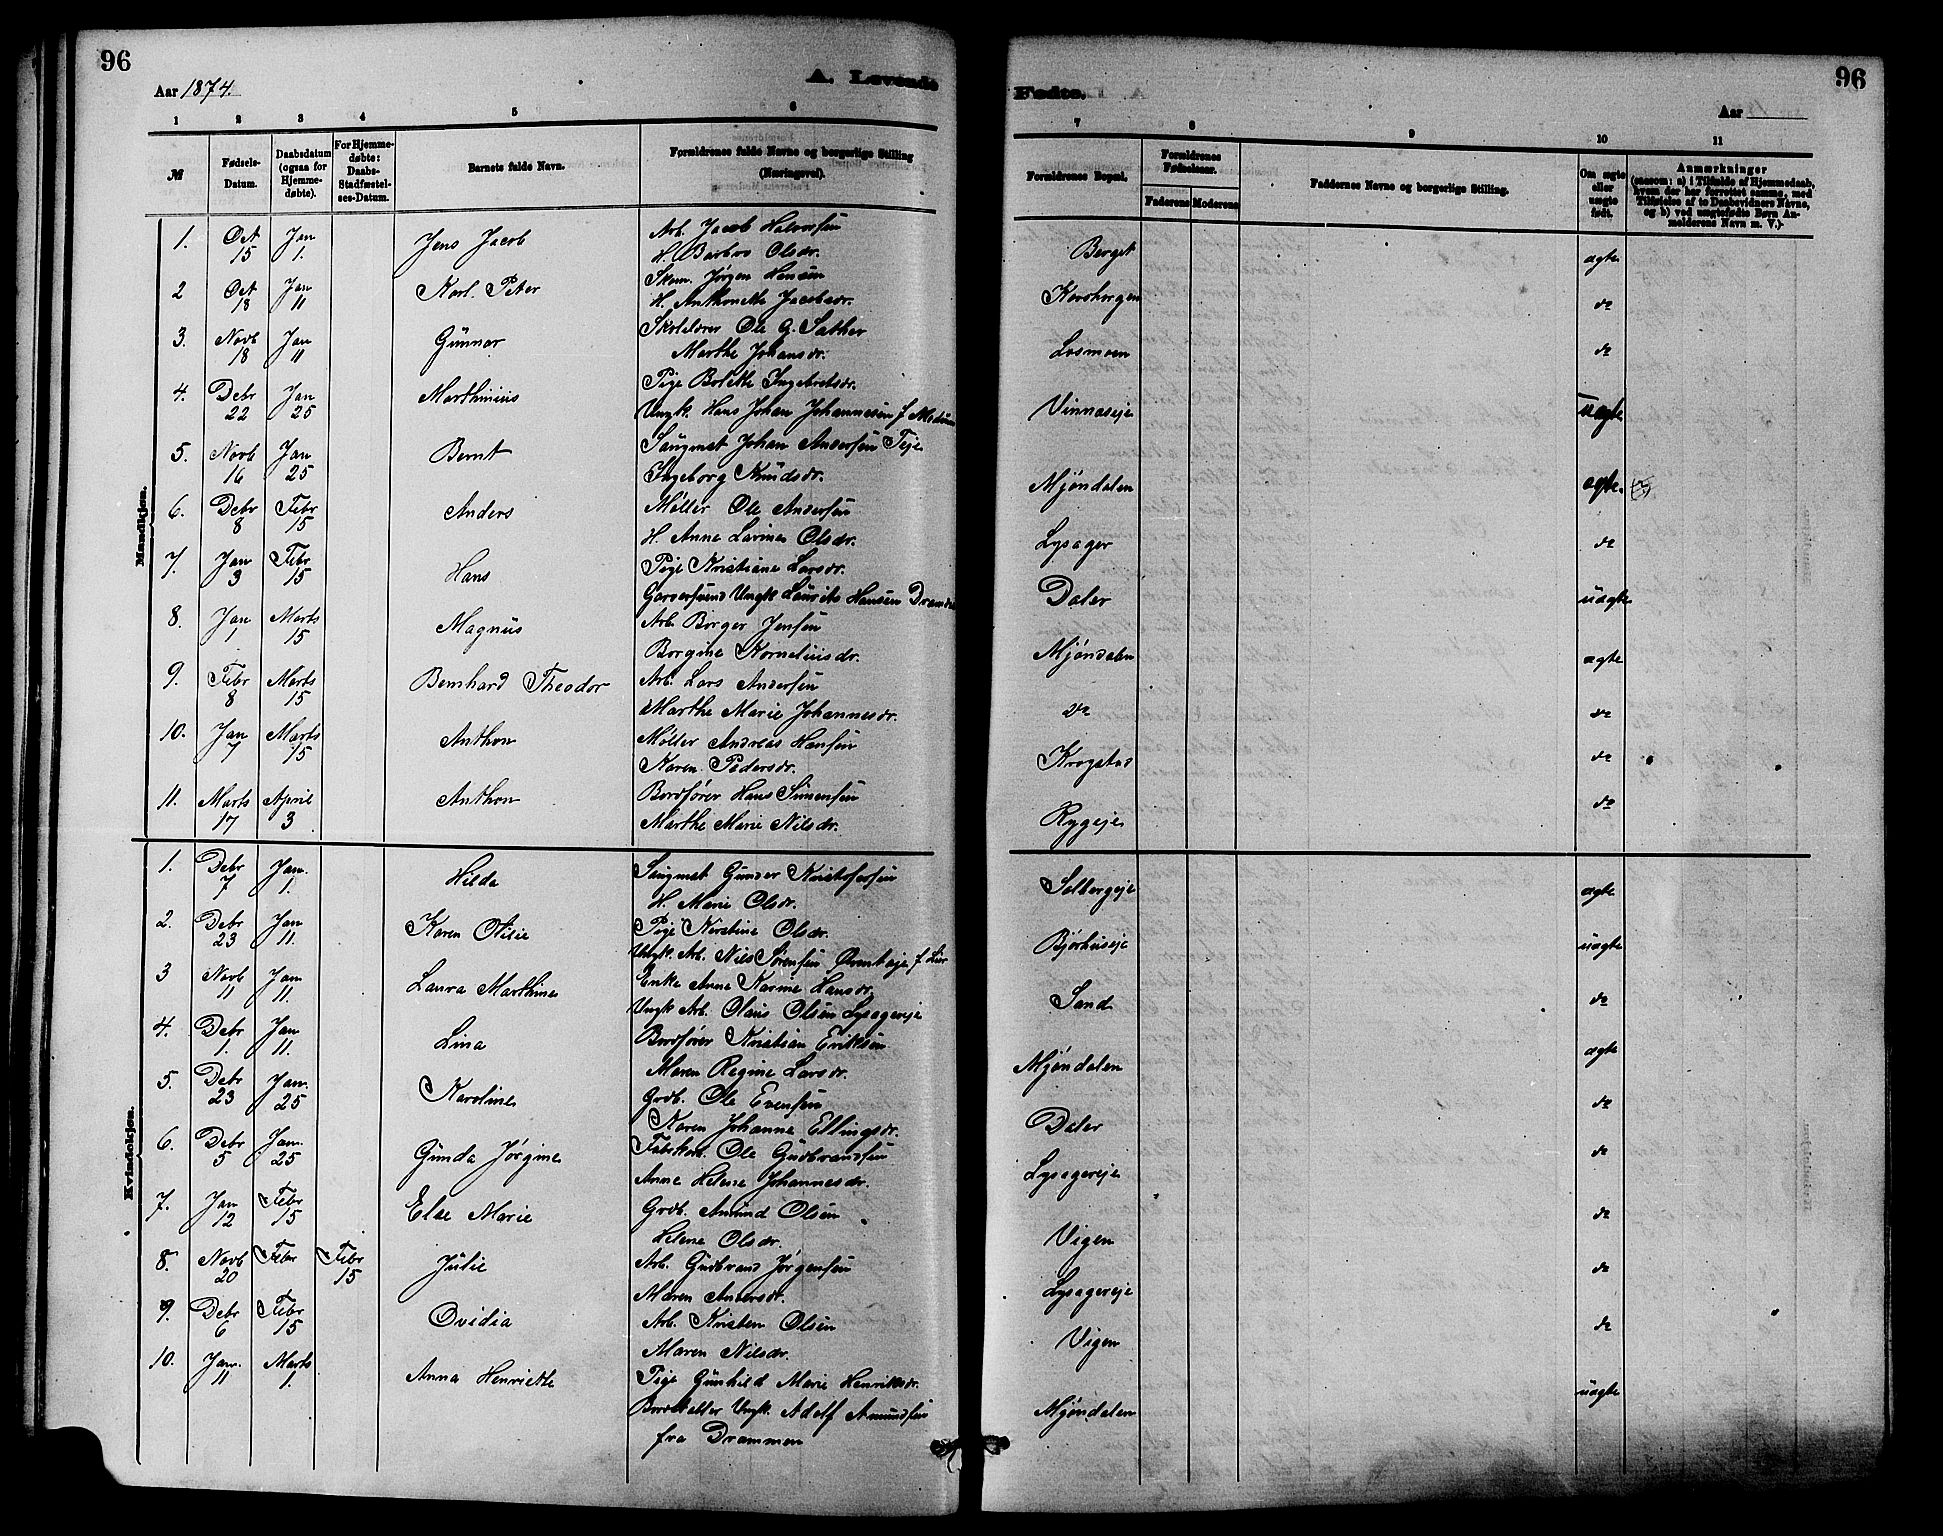 96
Aar 1874.
A. Levende
1 2 3 4 5 6
№ Fødsels-Datum. Daabsdatum (ogsaa for Hjemmedøbte). For Hjemmedøbte: Daabs-Stadfæstelses-Datum. Barnets fulde Navn. Forældrenes fulde Navne og borgerlige Stilling (Næringsvei).
Mandkjøn.
1. Oct 15 Jan 1. Jens Jacob Arb. Jacob Halvorsen
H. Barbro Olsdr.
2 Oct 18 Jan 11 Karl. Peter Skom. Jørgen Hansen
H. Anthonette Jacobsdr.
3. Novb 18 Jan 11 Gunnar Skolelærer Ole G. Sather
Marthe Johansdr.
4. Debr 22 Jan 25 Marthinius Pige Bolette Ingebretsdr.
Ungk. Hans Johan Johannesen f. Modum
5. Novb 16 Jan 25 Bernt Saugmst Johan Andersen Teje
Ingeborg Knudsdr.
6. Debr 8 Febr 15 Anders Møller Ole Andersen
H. Anne Lavine Olsdr.
7. Jan 3 Febr 15 Hans Pige Kristiane Larsdr.
Garversvend Ungk Laurits Hansen
8. Jan 1 Marts 15 Magnus Arb. Borger Jensen
Borgine Korneliusdr.
9. Febr 8 Marts 15 Bernhard Theodor Arb. Lars Andersen
Marthe Marie Johannesdr.
10. Jan 7 Marts 15 Anthon Møller Andreas Hansen
Karen Pedersdr.
11. Marts 17 April 3 Anthon Bordfører Hans Simensen
Marthe Marie Nilsdr.
Kvindekjøn.
1. Debr 7 Jan. 1. Hilda Saugmst Gunder Kristofersen
H. Marie Olsdr.
2. Debr 23 Jan 11. Karen Otilie Pige Kirstine Olsdr.
Ungk. Arb. Nils Sørensen f. Lier
3 Novb 11 Jan 11. Laura Marthine Enke Anne Karine Hansdr.
Ungk Arb. Olaus Olsen Lysagereje
4. Debr 1. Jan 11. Lina Bordfører Kristian Eriksen
Maren Regine Larsdr.
5. Debr 23 Jan. 25 Karoline Grdb. Ole Evensen
Karen Johanne Ellingsdr.
6. Debr 5 Jan. 25 Gunda Jørgine Ole Gudbrandsen
Anne Helene Johannesdr.
7. Jan 12 Febr 15 Else Marie Grdb. Amund Olsen
Helene Olsdr.
8. Novb 20 Febr Febr 15 Julie Arb. Gudbrand Jørgensen
Maren Andersdr.
9. Debr 6 Febr 15 Ovidia Arb. Kristen Olsen
Maren Nilsdr.
10. Jan. 11 Marts 1. Anna Henriette Pige Gunhild Marie Henriksdr.
Ungk. Adolf Amundsen
fra Drammen
Fødte.
96
Aar
7 8 9 10 11
Forældrenes Bopæl. Forældrenes Fødselsaar. Faderens Moderens Faddernes Navne og borgerlige Stilling. Om ægte eller uægte født. Anmærkninger (saasom: a) i Tilfælde af Hjemmedaab, hvem der har forrettet samme, med Tilføielse af to Daabsvidners Navne, og b) ved uægtefødte Børn Anmelderens Navn m. V.)
Berget ægte
Korsborgen do
Losmoen do
Vinnaseje Uægte
Mjøndalen ægte.
Lysager do
Daler uægte
Mjøndalen ægte
do do
Krogstad do
Rygeje do
Solbergeje ægte
Bjørhuseje uægte
Sand do
Mjøndalen ægte
Daler do
Lysagereje do
Vigen do
Lysagereje do
Vigen do
Mjøndalen uægte